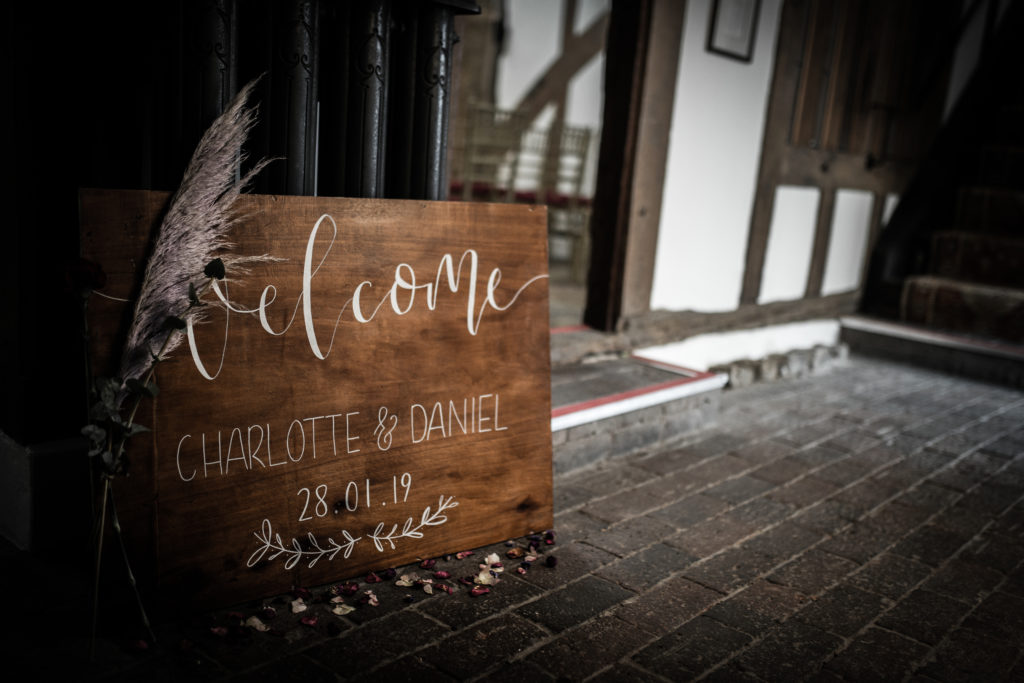 welcome
CHARLOTTE & DANIEL
28.01.19